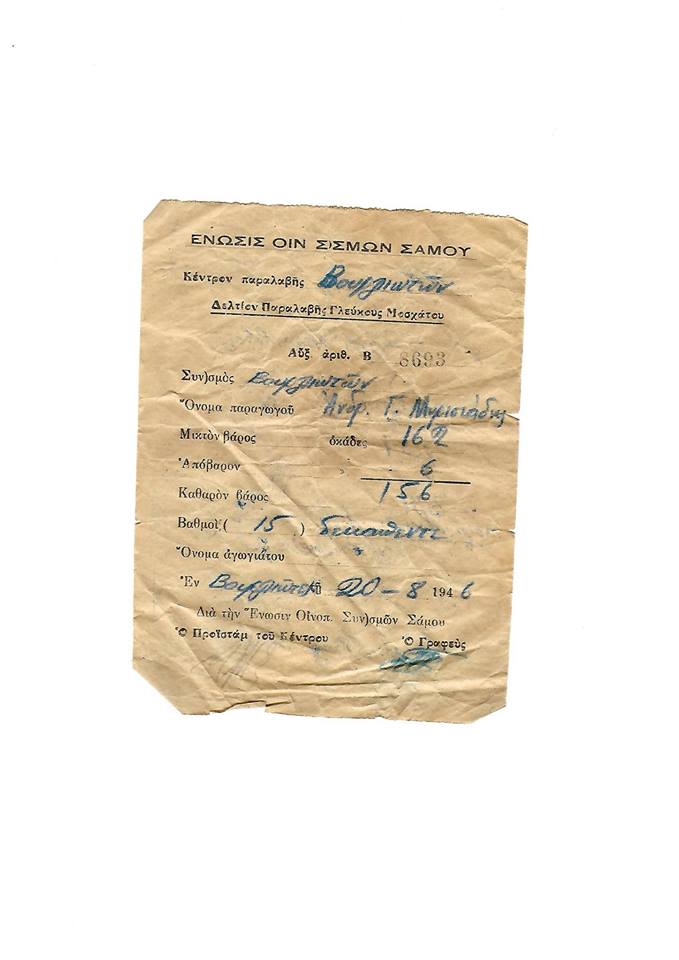 ΕΝΩΣΙΣ ΟΙΝ ΣΙΣΜΩΝ ΣΑΜΟΥ
Κέντρον παραλαβῆς Βουρλιωτῶν
Δελτίον Παραλαβῆς Γλεύκους Μοσχάτου
Αὔξ ἀριθ. Β 8693
Συν)σμὸς Βουρλιωτῶν
Ὄνομα παραγωγοῦ Ἀνδρ. Γ.
Μικτὸν βάρος ὀκάδες 162
Ἀπόβαρον » 6
Καθαρὸν βάρος 156
Βαθμοὶ ( 15 ) δεκαπέντε
Ὄνομα ἀγωγιάτου
Ἐν 20 - 8 1946
Διὰ τὴν Ἕνωσιν Οἰνοπ. Συν)σμῶν Σάμου
Ὁ Προϊστάμ τοῦ Κέντρου Ὁ Γραφεὺς